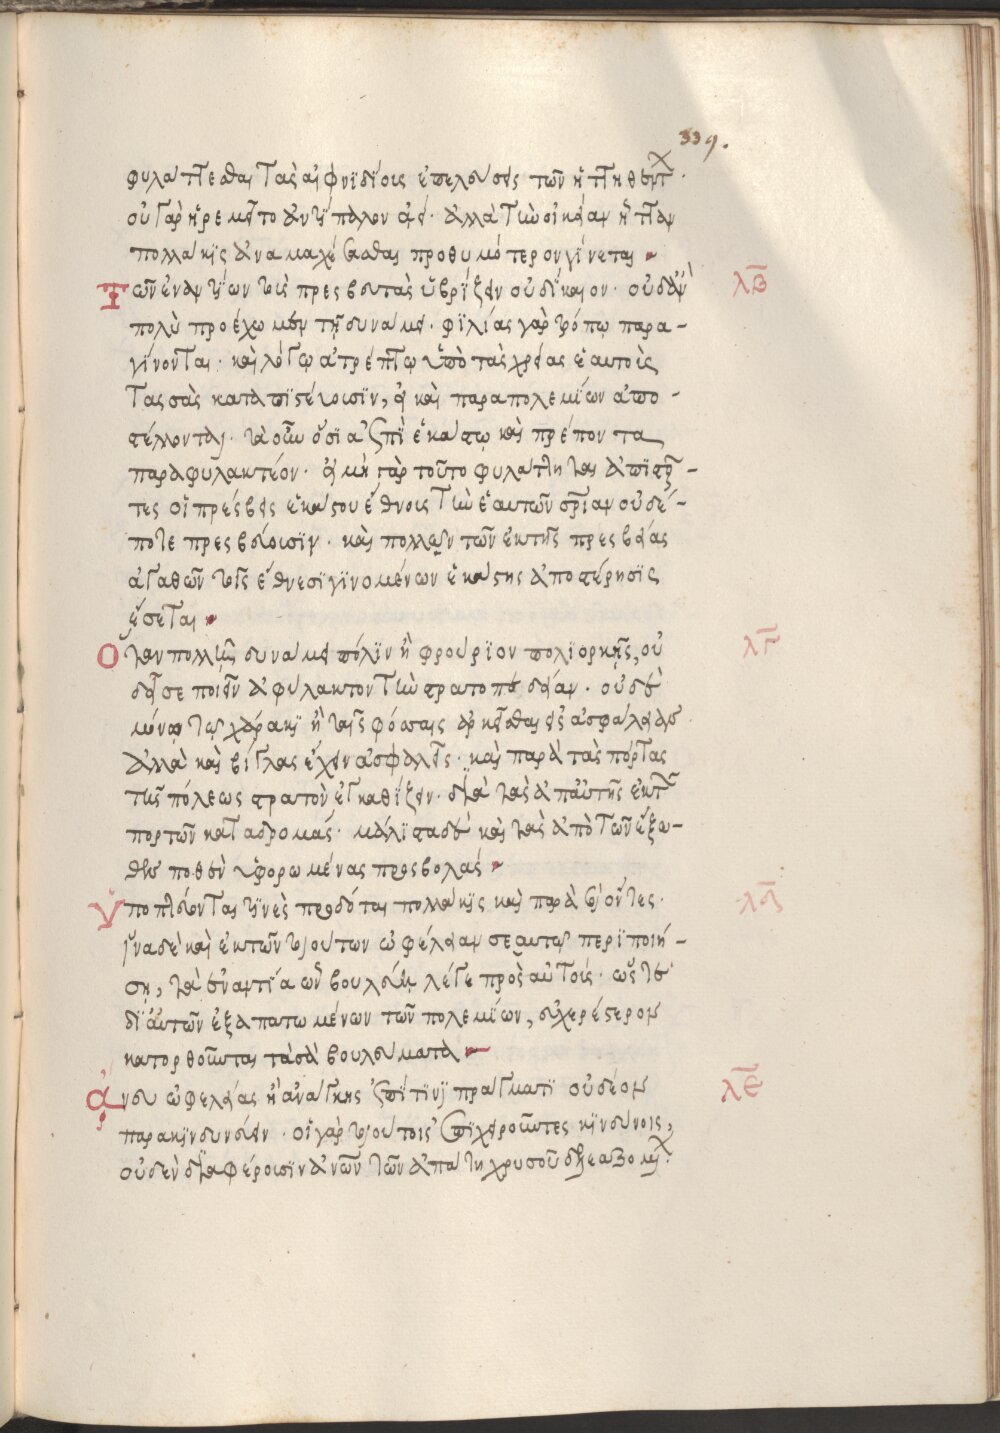 339.
φυλάττεσθαι τὰς αἰφνιδίους ἐπελεύσεις τῶν ἡττηθέντ
οὐ γὰρ ἠρεμεῖ τὸ ἀντίπαλον ἀεί· ἀλλὰ τὴν οἰκείαν ἧτταν
πολλακις ἀναμαχέσασθαι προθυμότερον γίνεται
Τῶν ἐναντίων τοὺς πρεσβευτὰς ὑβρίζειν οὐ δίκαιον· οὐδ' ἂν λβ
πολὺ προέχωμεν τῇ δυνάμει· φιλίας γὰρ τρόπῳ παρα-
γίνονται· καὶ λόγῳ ἀτρέπτῳ ὑπὸ τὰς χρείας ἑαυτοὺς
τάσσας καταπιστεύουσιν, εἰ καὶ παρα πολεμίων ἀπο-
στέλλονται· τὰ οὖν ὅσια ἐπὶ ἑκάστῳ καὶ πρέποντα
παραφυλακτέον· εἰ μὴ γὰρ τοῦτο φυλάττηται ἀπιστοῦν-
τες οἱ πρέσβεις ἑκάστου ἔθνους τὴν ἑαυτῶν σρίαν οὐδέ-
ποτε πρεσβεύουσιν· καὶ πολλῶν τῶν ἐκ τῆς πρεσβείας
ἀγαθῶν τοῖς ἔθνεσι γινομένων ἑκάστης ἀποστέρησις
ἔσεται
Ὅταν πολλῇ δυνάμει πόλιν ἢ φρούριον πολιορκῇς, οὐ λγ
δεῖ σε ποιεῖν ἀφύλακτον τὴν στρατοπεδείαν· οὐδὲ
μόνῳ τῷ χάρακι ἢ ταῖς φόσσαις ἀρκεῖσθαι εἰς ἀσφάλειαν
ἀλλὰ καὶ βίγλας ἔχειν ἀσφαλεῖς· καὶ παρὰ τὰς πόρτας
τῆς πόλεως στρατὸν ἐγκαθίζειν· διὰ τὰς ἀπ' αὐτῆς ἐκ τῶν
πορτῶν καταδρομάς· μάλιστα δὲ καὶ τὰς ἀπὸ τῶν ἔξω-
θεν ποθεν ὑφορωμένας προσβολάς
Ὑποπτεύονται τινὲς προδόται πολλάκις καὶ παρὰ σοὶ ὄντες· λδ
ἵνα δὲ καὶ ἐκ τῶν τοιούτων ὠφέλειαν σεαυτῷ περιποιή-
σῃ, τὰ ἐναντία ὧν βουλεύῃ λέγε πρὸς αὐτούς· ὥστε
δι' αὐτῶν ἐξαπατωμένων τῶν πολεμίων, εὐχερέστερον
κατορθοῦσται τὰ σὰ βουλεύματα
Ἄνευ ὠφελείας ἢ ἀνάγκης ἐπί τινι πράγματι οὐ δέον λε
παρακινδυνεύειν· οἱ γὰρ τοιούτοις ἐπιχειροῦντες κινδύνοις,
οὐδὲν διαφέρουσιν ἀνῶν τῶν ἀπάτῃ χρυσοῦ δελεαζομέν